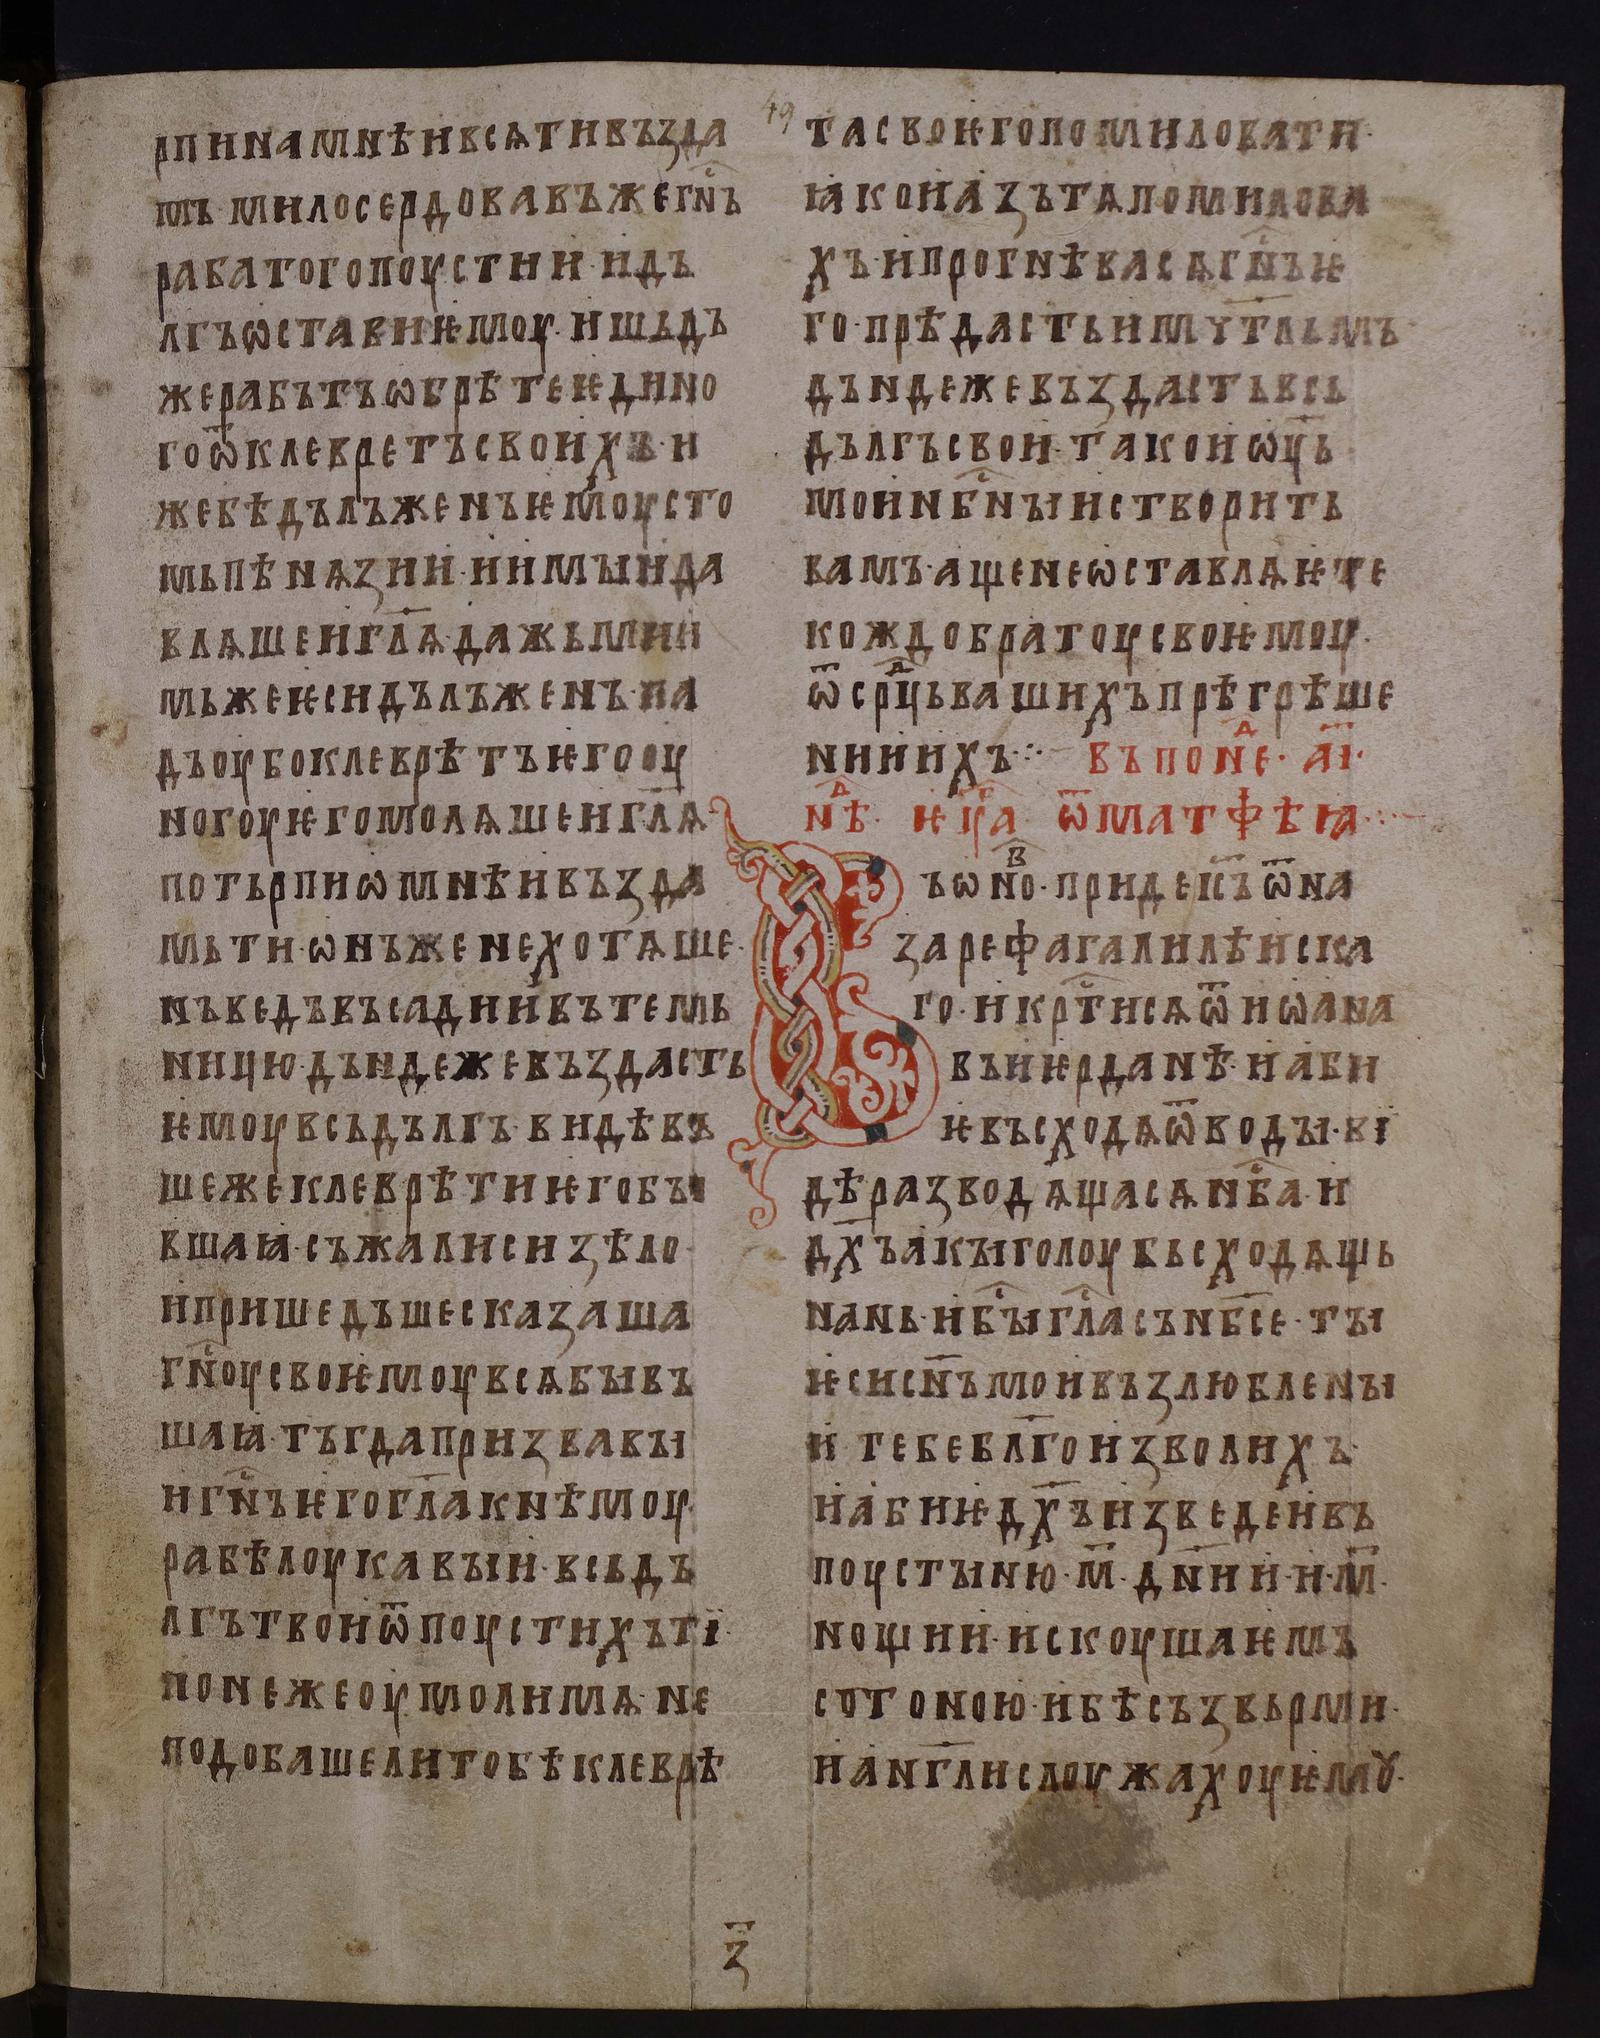 49
рпинамнѣивсѧтивъзда
мъ милосердовавъжегн҃ъ
рабатогопоустиии·идъ
лгъѡставиѥмоу·ишьдъ
жерабътъѡбрѣтеѥдино
гоѿклевретъсвоихъ·и
жебѣдълъженъѥмоусто
мьпѣнѧзии·иимыида
влѧшеигл҃ѧ·дажьмии
мьжеѥсидълъженъ·па
дъоубоклеврѣтъѥгооу
ногоуѥгомолѧшеигл҃ѧ
потьрпиѡмнѣивъзда
мьти·ѡнъженехотѧше·
нъведъвъсадиивътемь
ницю·дъндежевъздасть
ѥмоувсьдългъ·видѣвъ
шежеклеврѣтиѥгобъı
вшаꙗ·съжалисизѣло·
ипришедъшесказаша
гн҃оусвоѥмоувсѧбывъ
шаꙗ·тъгдапризвавъı
игн҃ъѥгогл҃акнѣмоу
рабѣлоукавыи·всьдъ
лгътвоиѿпоустихътı·
понежеоумолимѧ·не
подобашелитобѣклеврѣ
тасвоѥгопомиловати·
ꙗкоиазътѧпомилова
хъ·ипрогнѣвасѧгн҃ъѥ
го·прѣдастьимꙋт҃льмъ
дъндежевъздастьвсь
дългъсвои·такоиѡц҃ь
моинб҃ныистворить
вамъ·ащенеѡставлѧѥте
кождобратоусвоѥмоу·
ѿср҃дцьвашихъпрѣгрѣше
нииихъ·:· въпоне҃д·а҃ı·
н҃дѣ· ѥуг҃а ѿматфѣꙗ
Въѡно҃в·придеıс҃ъѿна
зарефагалилѣиска
го·икр҃тисѧѿиѡана
въиѥрданѣ·иаби
ѥвъсходѧѿводы·вı
дѣразводѧщасѧнб҃а·и
дх҃ъакыголоубьсходѧщь
нань·иб҃ыгл҃асънб҃се·ты
ѥсисн҃ъмоивъзлюблены
и тебебл҃гоизволихъ·
иабиѥдх҃ъизведеивъ
поустыню·м҃·дн҃ии·и·м҃·
нощии·искоушаѥмъ
сотоною·ибѣсъзвьрми·
ианг҃лислоужахоуѥмꙋ·
з҃